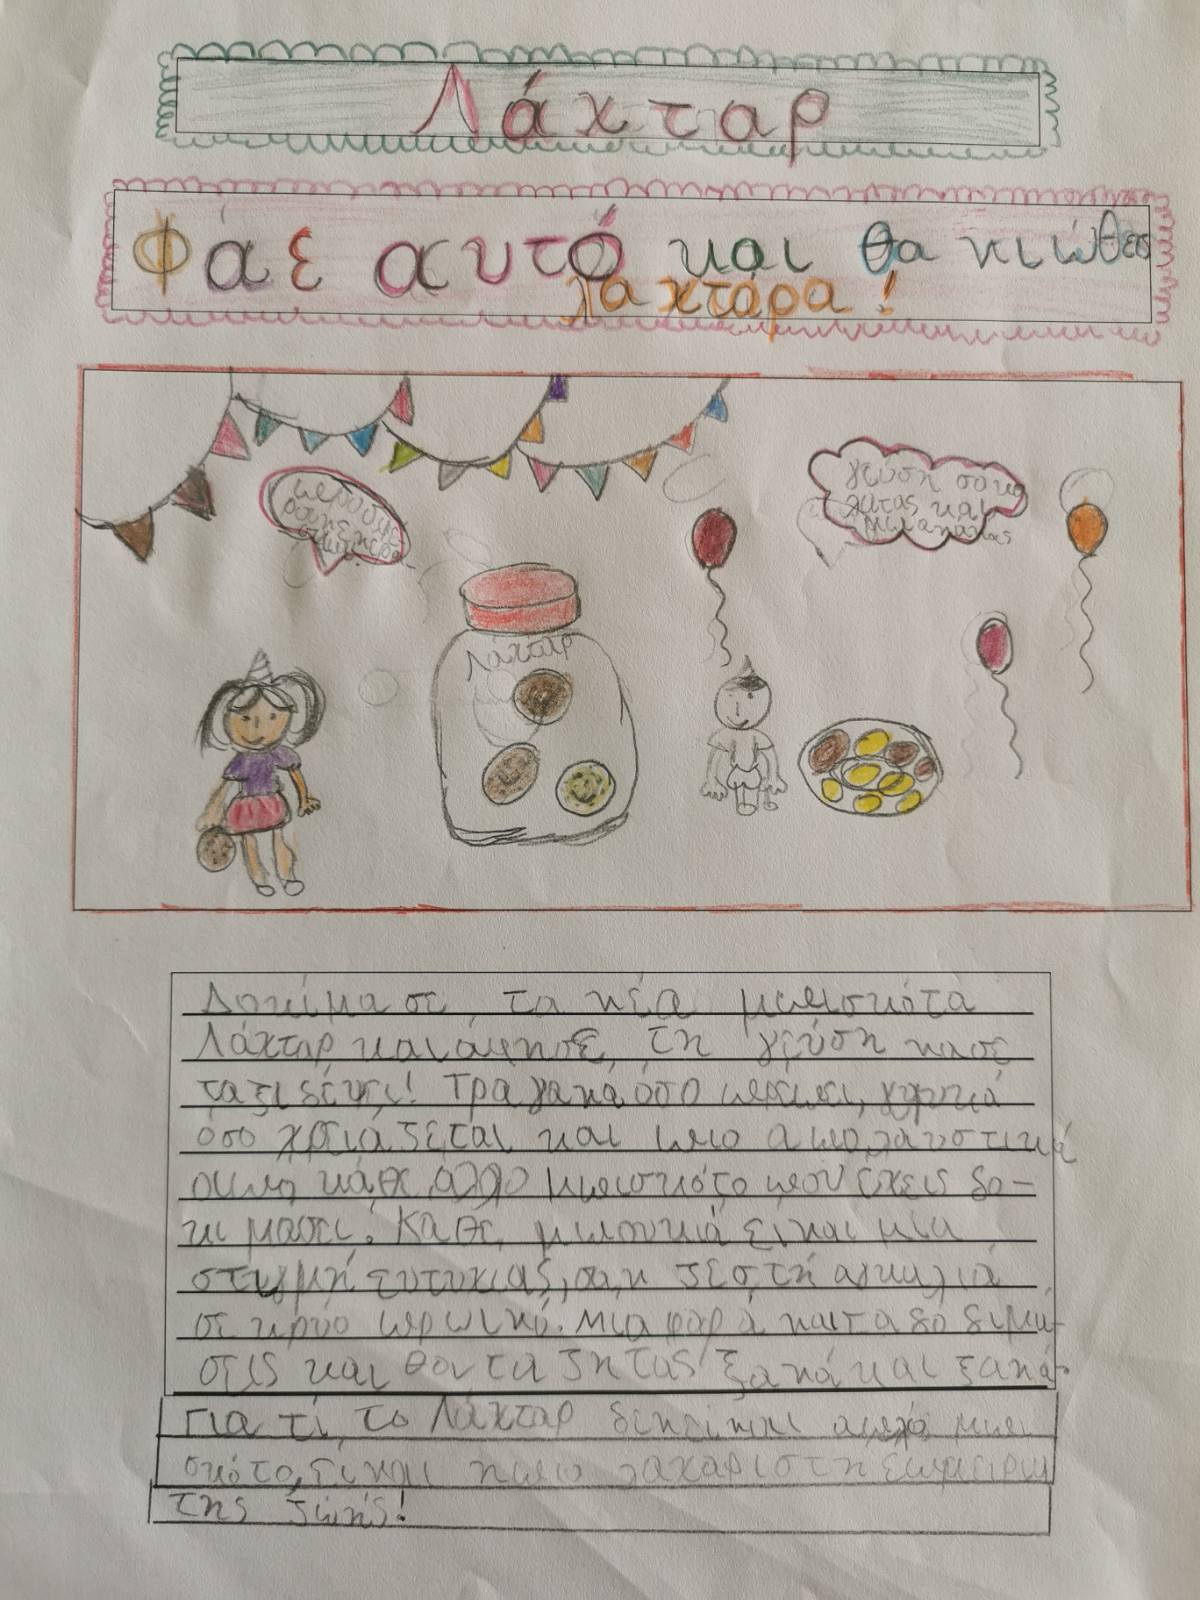 Λάχταρ
Φάε αυτό και θα νιώθεις
λαχτάρα!
γεύση σοκο
λάτας και
μπανανας
Λάχταρ
Δοκίμασε τα νέα μπισκότα
Λάχταρ και άφησε, τη γεύση να σε
ταξιδέψει! Τραγανα όσο πρεπει, γλυκά
όσο χρειάζεται και πιο απολαυστικά
από κάθε άλλο μπισκότο που έχεις δο-
κιμασει. Καθε μπουκιά είναι μια
στιγμή ευτυχιας, σαν ζεστή αγκαλιά
σε κρύο πρωινό. Μια φορά να τα δο
και θαντα ζητάς ξανά και ξανά.
Για τί, το Λάχταρ δεν είναι απλά μπι
σκότο, είναι η πιο
της ζωής!